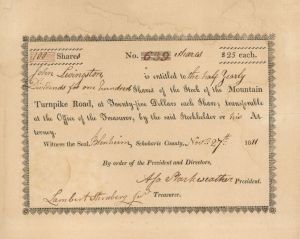 100 Shares No. Shares $25 each.
John Livingston, is entitled to the half Yearly
Dividends for one hundred Shares of the Stock of the Mountain
Turnpike Road, at Twenty-five Dollars each Share; transferable
at the Office of the Treasurer, by the said Stockholder or his At-
torney.
Witness the Seal, Blenheim, Schoharie County, Nov. 27th 1811
By order of the President and Directors,
Asa Starkweather President.
Lambert Treasurer.